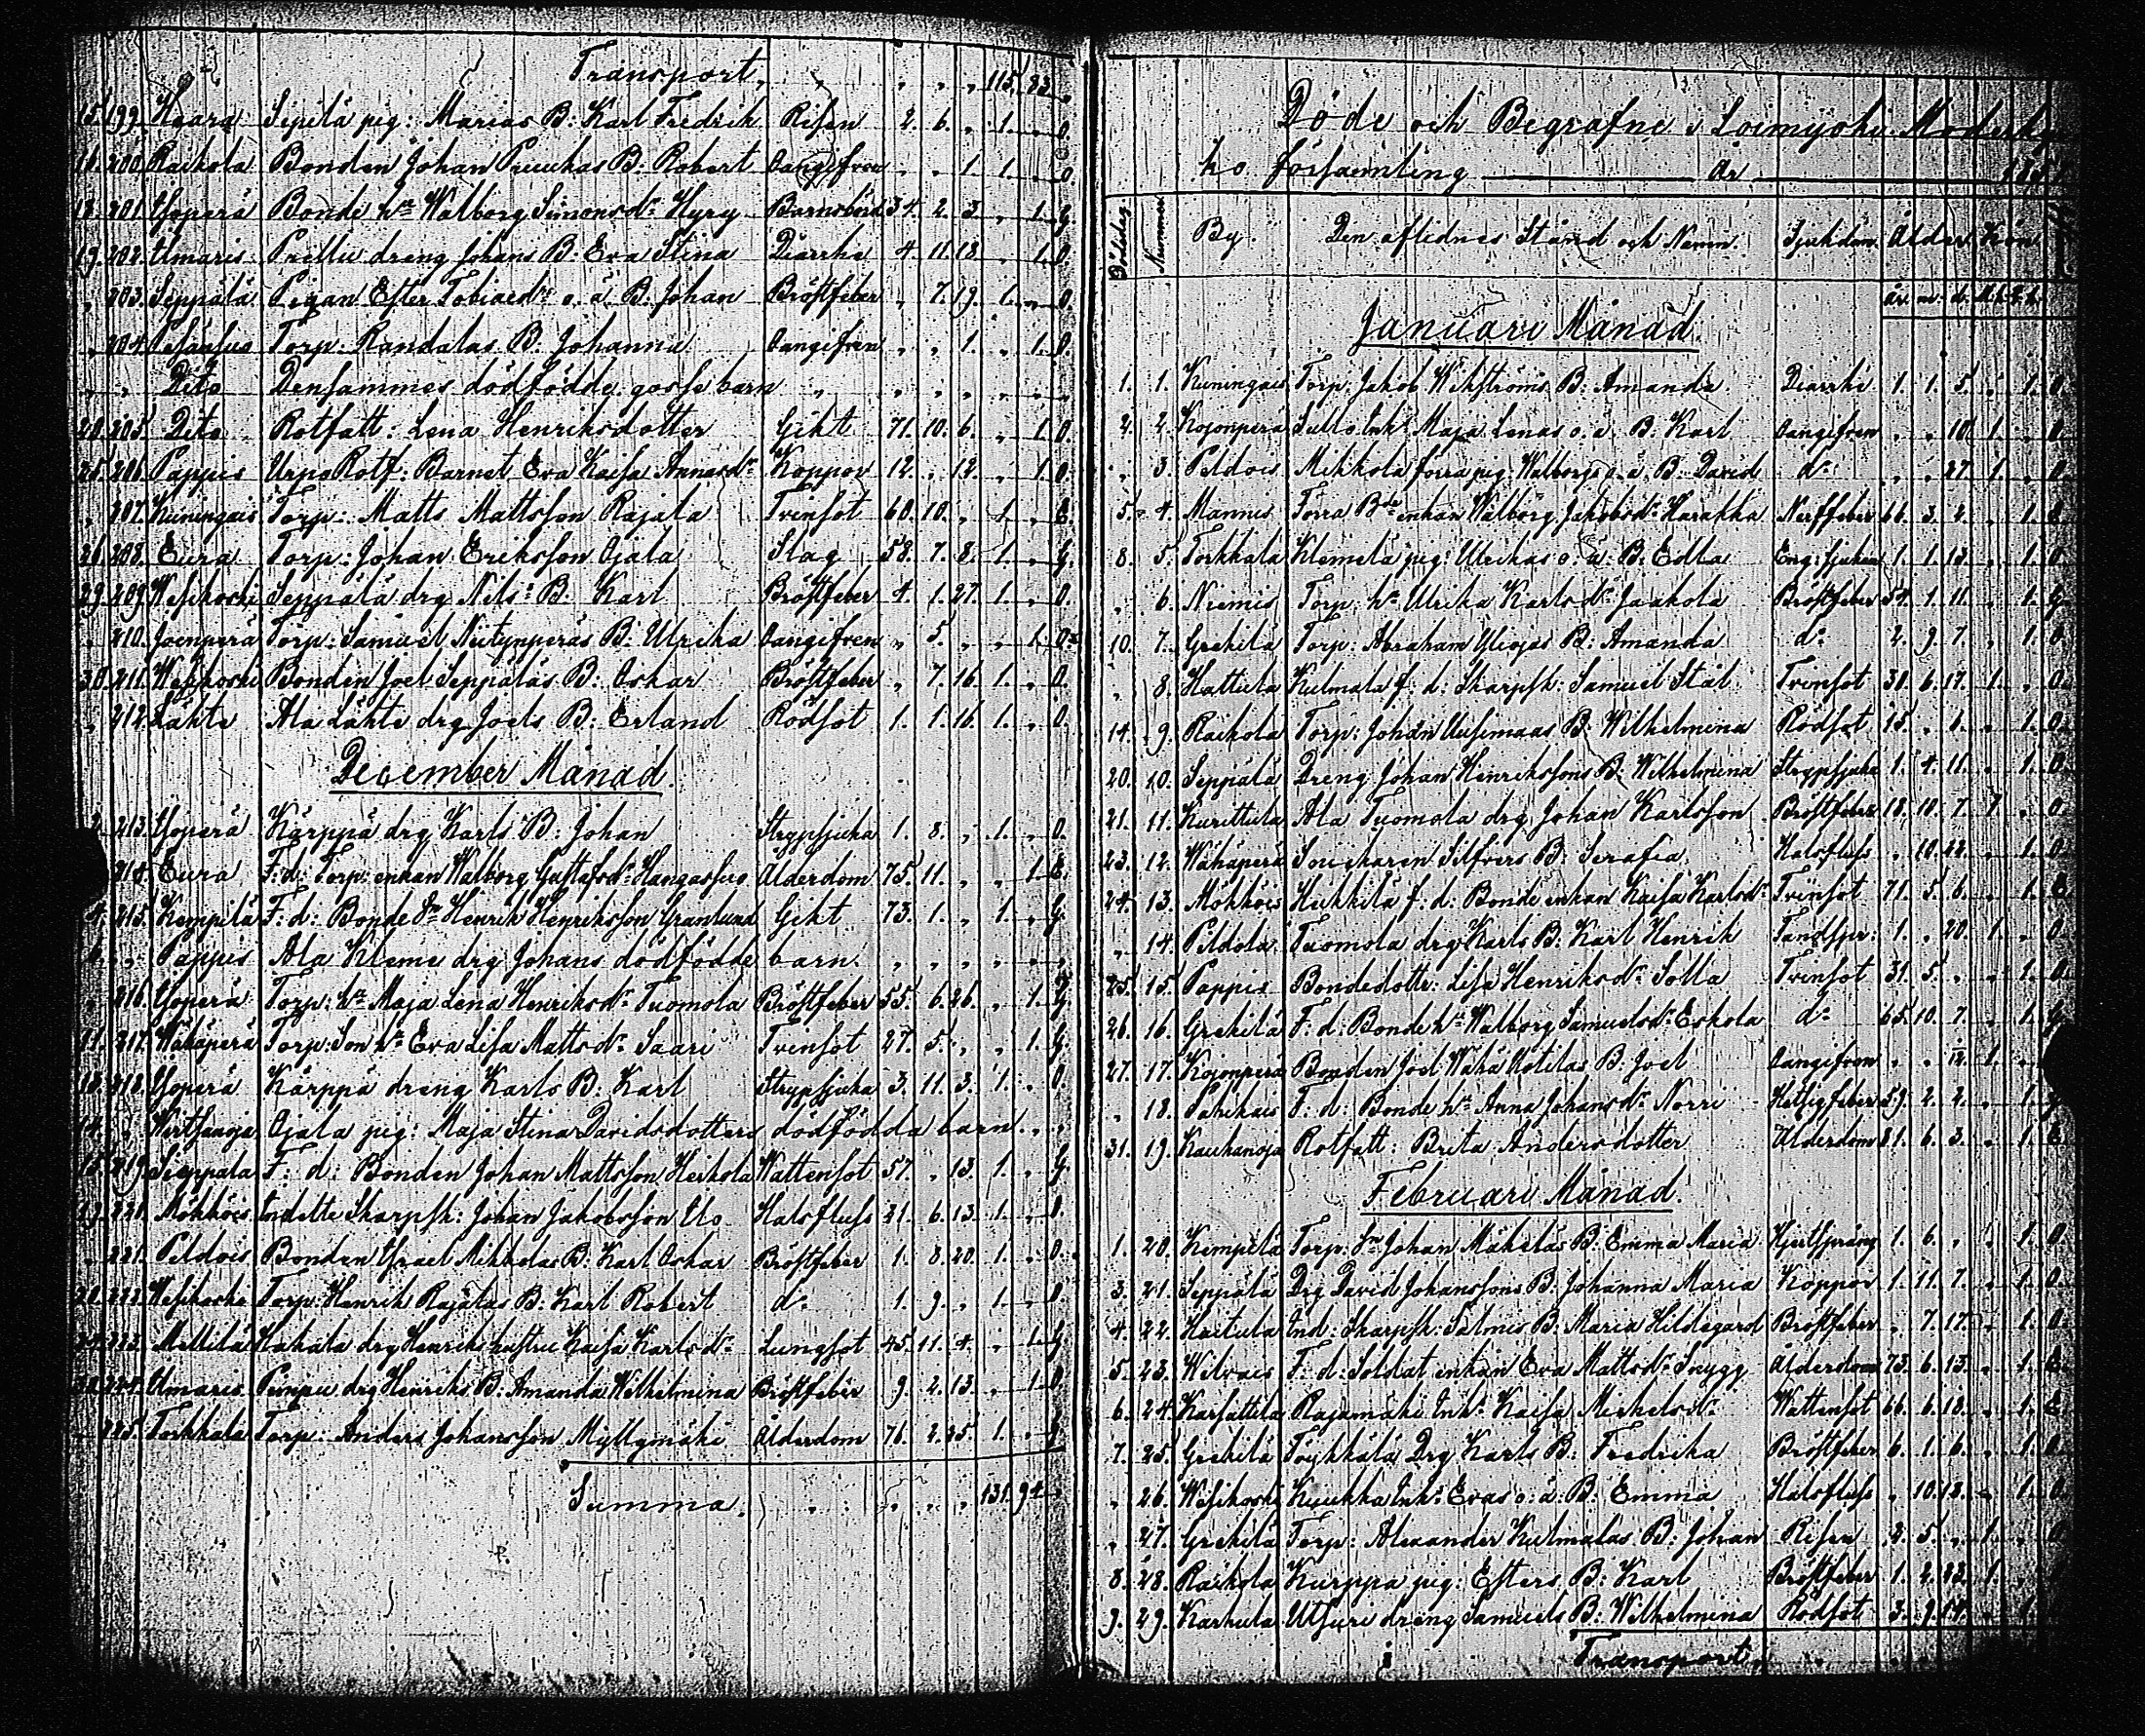 Transport „ „ „ „ 115. 83. „
15. 199. Haara Sipilä pig: Marias B: Karl Fredrik Risen 2. 6. „ 1. „ O.
16. 200. Raikola Bonden Johan Prunkas B: Robert Oangifven „ „ 1. 1. „ O.
18. 201. Ylöperä Bonde hu Walborg Simonsdr Hyry Barnsbörd 34. 2. 3. „ 1. G.
19. 202. Ylmaris Prellu dreng Johans B: Eva Stina Diarrhé 4. 11. 18. „ 1. O.
„ 203. Seppälä Pigan Ester Tobiaedr o. ä. B. Johan Bröstfeber „ 7. 19. 1. „ O.
„ 204. Torp: Randalas B. Johanna Oangifven „ „ 1. „ 1. O.
„ „ Dito Densammes dödfödde gosse barn „ „ „ „ „ „
20. 205. Dito Rotfatt: Lena Henriksdotter Gikt 71. 10. 6. „ 1. O.
25. 206. Pappis Urpo Rotf: Barnet Eva Kaisa Annasdr Koppor 12. „ 12. „ 1. O.
„ 207. Kuningais Torp: Matts Mattsson Rajala Tvinsot 60. 10. „ 1. „ E.
26. 208. Eura Torp: Johan Eriksson Ojala Slag 58. 7. 8. 1. „ G.
29. 209. Wesikoski Seppälä drg Nils: B. Karl Bröstfeber 4. 1. 27. 1. „ O.
„ 210. Joenperä Torp: Samuel Nutynperäs B: Ulrika Oangifven „ 5. „ „ 1. O.
30. 211. Wesikoski Bonden Joel Seppäläs B: Oskar Bröstfeber „ 7. 16. 1. „ O.
„ 212. Lähte Ala Lähte drg Joels B: Erland Rödsot 1. 1. 16. 1. „ O.
December Månad.
213. Ylöperä Kärppä drg Karls B: Johan Strypsjuka 1. 8. „ 1. „ O.
214. Eura F: d: Torp: enkan Walborg Gustafsdr Hangassuo Ålderdom 75. 11. „ „ 1. E.
4. 215. Kempilä F: d: Bonde Sn Henrik Henriksson Granlund Gikt 73. 1. „ 1. „ G.
6. „ Pappis Ala Kleme drg Johans dödfödde barn. „ „ „ „ „
„ 216. Ylöperä Torp: hu Maja Lena Henriksdr Tuomola Bröstfeber 55. 6. 26. „ 1. G.
11. 217. Wähäperä Torp: Son hu Eva Lisa Mattsdr Saari Tvinsot 27. 5. „ „ 1. G.
12. 218. Ylöperä Kärppä dreng Karls B: Karl Strypsjuka 3. 11. 3. 1. „ O.
14. „ Wirtsanoja Ojala pig: Maja Stina Davidsdotters dödfödda barn. „ „
15. 219. Seppälä F: d: Bonden Johan Mattsson Heikola Wattensot 57. „ 13. 1. „ G.
19. Mökköis Indelte Skarpsk: Johan Jakobsson Uo Halsfluss 21. 6. 13. 1. „ O.
„ 221. Peldois Bonden Israel Mikkolas B: Karl Oskar Bröstfeber 1. 8. 20. 1. „ O.
222. Wesikoski Torp: Henrik Rajalas B: Karl Robert do 1. 9. „ 1. „ O.
223. Mellilä Hakala drg Henriks hustru Kaisa Karlsdr Lungsot 45. 11. 4. „ 1. G.
224. Ylmaris Pimpu drg Henriks B: Amanda Wilhelmina Bröstfeber 9. 2. 13. „ 1. O.
„ 225. Torkkala Torp: Anders Johansson Myllymäki Ålderdom 76. 2. 25. 1. „ G.
Summa. „ „ „ „ „ 131. 94.
Döde och Begrafne i Loimijoki Moderky
ko församling ——— År ———
Dödsdag. Nummer. By. Den aflidnes Stånd och Namn. Sjukdom. Ålder Kön
år. m. d. M.k. Q.k.
Januari Månad.
1. 1. Kuningais Torp: Jakob Wikströms B: Amanda Diarrhé 1. 1. 5. „ 1. O.
2. 2. Kojonperä Sullo Inh: Maja Lenas o. ä. B. Karl Oangifven „ „ 10. 1. „ O.
„ 3. Peldois Mikkola förra pig Walborgs o. ä. B. David do „ „ 27. 1. „ O.
5. 4. Mannis Förra Bde enkan Walborg Jakobsdr Harakka Nerffeber 66. 3. 2. „ 1. E.
8. 5. Torkkala Klemelä pig: Ulrikas o. ä. B. Edla Eng: sjukan 1. 1. 13. „ 1. O.
„ 6. Niemis Torp: hu Ulrika Karlsdr Jaakola Bröstfeber 54. 1. 11. „ 1. G.
10. 7. Grekilä Torp: Abraham Yliojas B: Amanda do 2. 9. 7. „ 1. O.
„ 8. Hattula Kulmala f: d: Skarpsk: Samuel Stål Tvinsot 31. 6. 17. 1. „ O.
14. 9. Raikola Torp: Johan Uusimaas B: Wilhelmina Rödsot 15. „ 6. „ 1. O.
20. 10. Seppälä Dreng Johan Henrikssons B: Wilhelmina Strypsjuka 1. 4. 11. „ 1. O.
21. 11. Kurittula Ala Tuomola drg Johan Karlsson Bröstfeber 18. 10. 7. 1. „ O.
23. 12. Wähäperä Souikaren Silfvers B: Serafia Halsfluss „ 10. 22. „ 1. O.
24. 13. Mökköis Heikkilä f: d: Bonde enkan Kaisa Karlsdr Tvinsot 71. 5. 6. „ 1. E.
„ 14. Peldola Tuomola drg Karls B: Karl Henrik Tandspr: 1. „ 20. 1. „ O.
25. 15. Pappis Bondedotter: Lisa Henriksdr Solla Tvinsot 31. 5. „ „ 1. O.
26. 16. Grekilä F: d: Bonde hu Walborg Samuelsdr Eskola do 65. 10. 7. „ 1. G.
27. 17. Kojonperä Bonden Joel Wähä Kotilas B: Joel Oangifven „ „ 12. 1. „
„ 18. Pahikais F: d: Bonde hu Anna Johansdr Norri Hetsigfeber 59. 2. 2. „ 1. G.
31. 19. Kauhanoja Rotfatt: Brita Andersdotter Ålderdom 81. 6. 3. „ 1. E.
Februari Månad.
1. 20. Kempilä Torp: Sn Johan Mäkeläs B: Emma Maria Hjertsprång 1. 6. „ „ 1. O.
3. 21. Seppälä Drg David Johanssons B: Johanna Maria Koppor 1. 11. 7. „ 1. O.
4. 22. Haitula Ind: Skarpsk: Salonis B: Maria Hildegard Bröstfeber „ 7. 17. „ 1. O.
5. 23. Wilvais F: d: Soldat enkan Eva Mattsdr Snygg Ålderdom 73. 6. 13. „ 1. E.
6. 24. Karsattila Rajamäki Inh: Kaisa Mickelsdr Wattensot 66. 6. 18. „ 1. E.
7. 25. Grekilä Töykkälä Drg Karls B: Fredrika Bröstfeber 6. 1. 6. „ 1. O.
„ 26. Wesikoski Kyukka Inh: Evas o: ä: B: Emma Halsfluss „ 10. 12. „ 1. O.
„ 27. Grekilä Torp: Alexander Kulmalas B: Johan Risen 2. 5. „ 1. „ O.
8. 28. Raikola Kurppa pig: Esters B: Karl Bröstfeber 1. 2. 23. 1. „
9. 29. Karhula Utsuri dreng Samuels B: Wilhelmina Rödsot 3. 9. 14. „ 1.
Transport